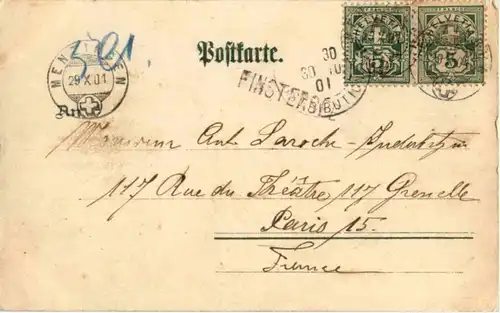 Postkarte.
MENZINGEN
29 X 01
HELVETIA
5
HELVETIA
5
FRANCO
30
01
DISTRIBUTION
An
Monsieur Ant. Laroche-Industrie
117 Rue du Théâtre 117 Grenelle
Paris 15.
France